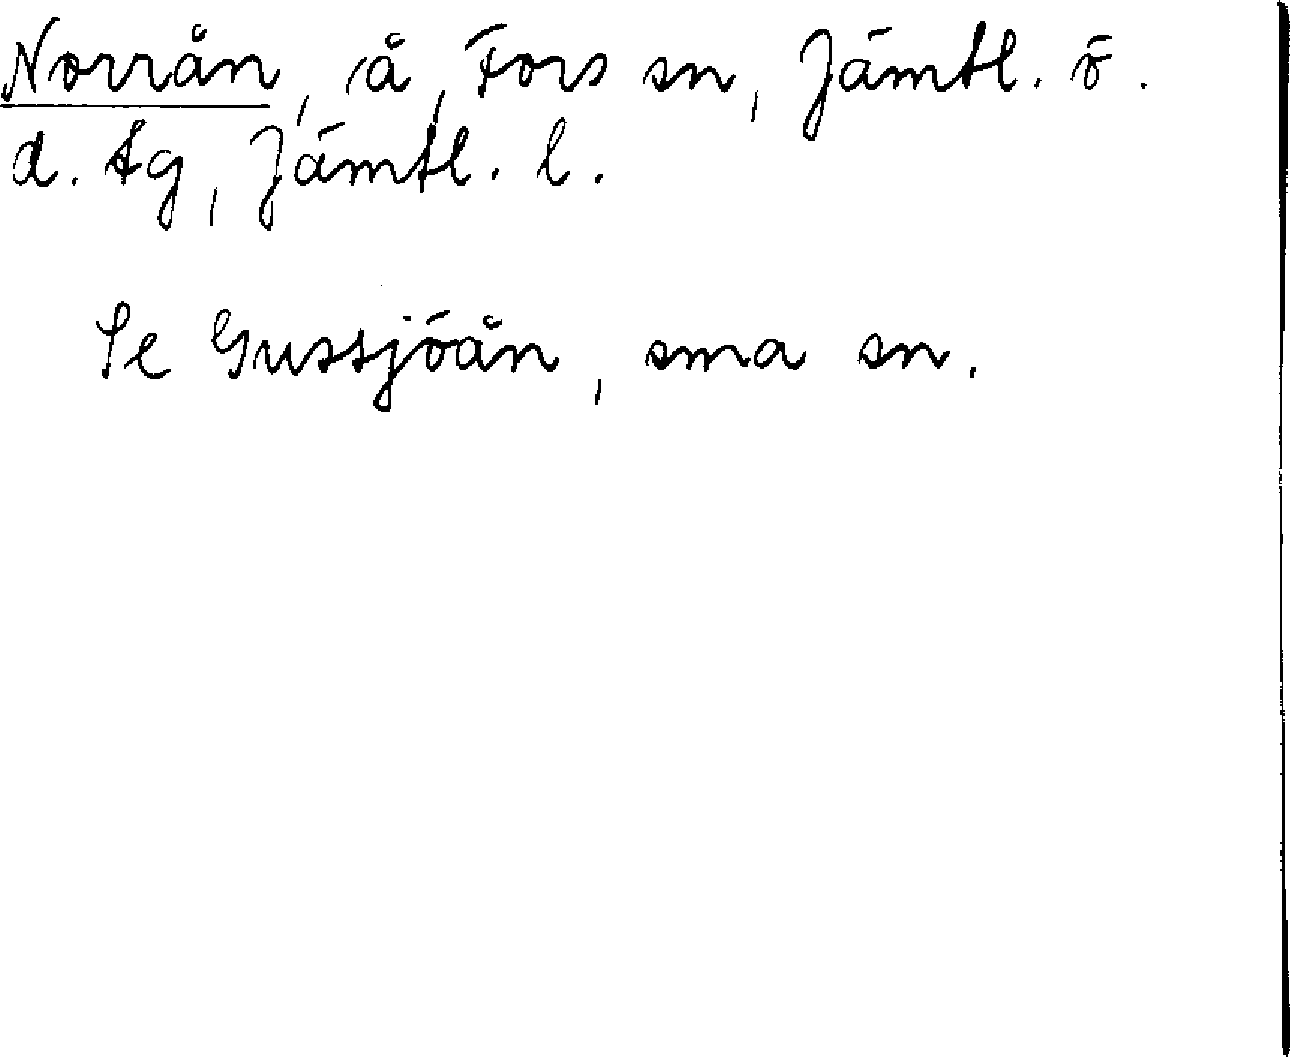 Norrån, å, Fors sn, Jämtl. ö.
d. tg, Jämtl. l.
Se Gussjöån, sma sn.